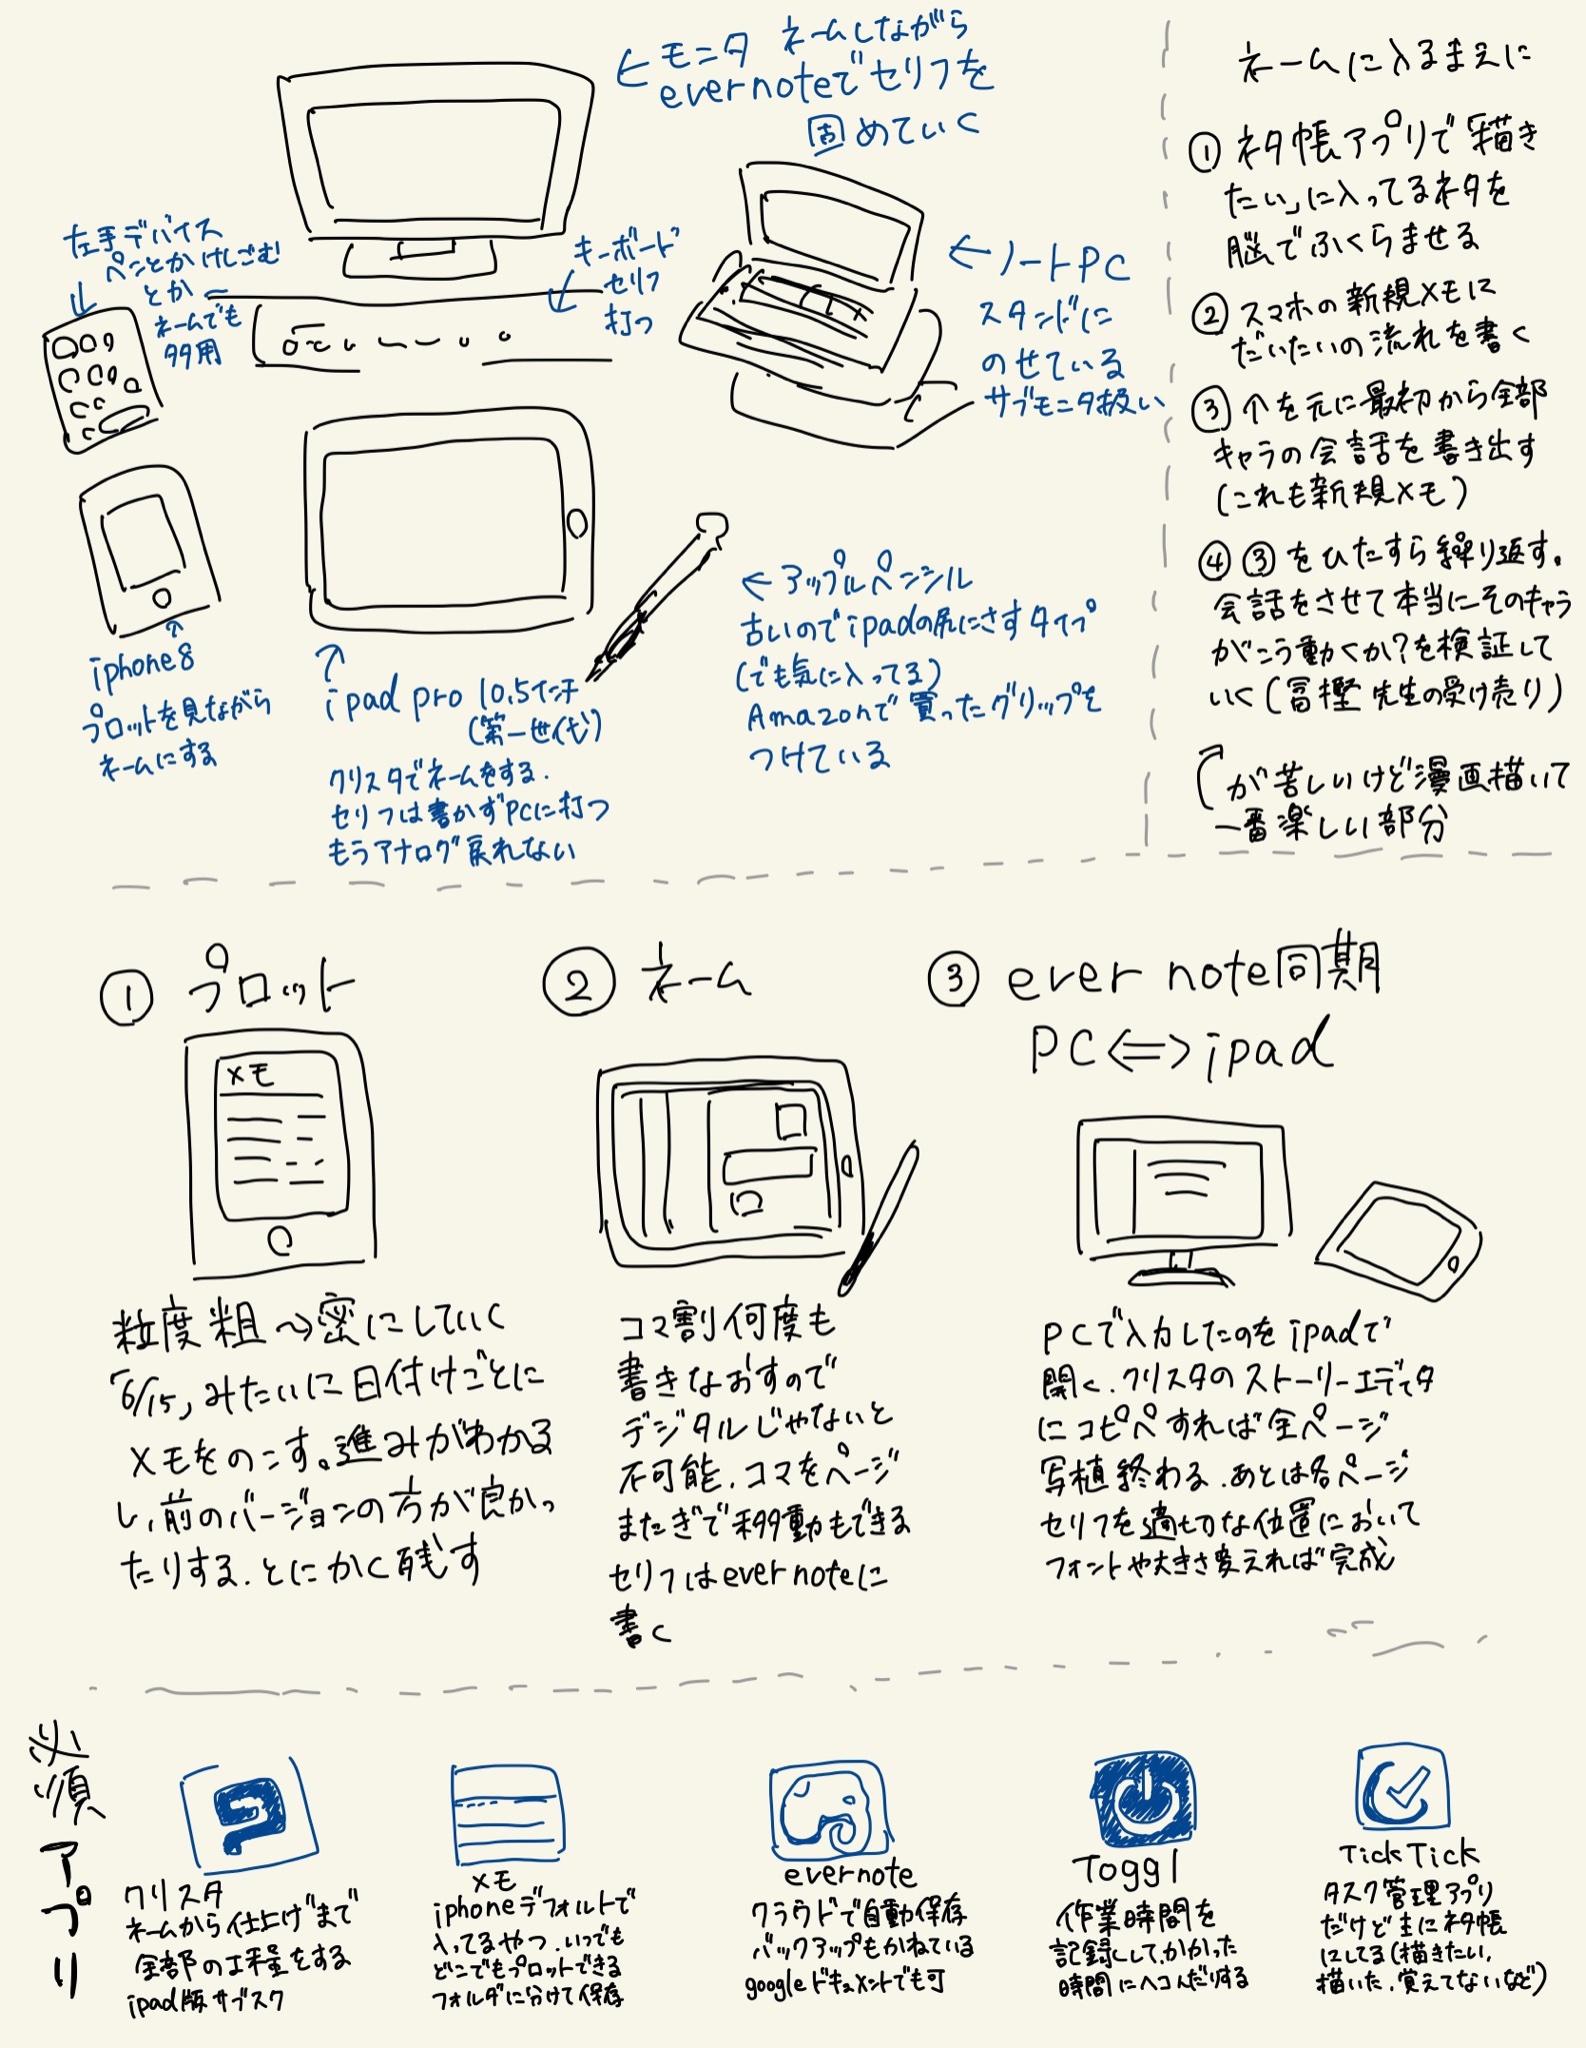 ←モニタ ネームしながら
evernoteでセリフを
固めていく
左手デバイス
ペンとかけしごむ
とか
ネームでも
多用
キーボード
セリフ
打つ
←ノートPC
スタンドに
のせている
サブモニタ扱い
iphone8
プロットを見ながら
ネームにする
ipad pro 10.5インチ
(第一世代)
クリスタでネームをする.
セリフは書かずPCに打つ
もうアナログ戻れない
←アップルペンシル
古いのでipadの尻にさすタイプ
(でも気に入ってる)
Amazonで買ったグリップを
つけている
ネームに入るまえに
① ネタ帳アプリで「描き
たい」に入ってるネタを
脳でふくらませる
② スマホの新規メモに
だいたいの流れを書く
③ ↑を元に最初から全部
キャラの会話を書き出す
(これも新規メモ)
④ ③をひたすら繰り返す。
会話をさせて本当にそのキャラ
がこう動くか?を検証して
いく(冨樫先生の受け売り)
が苦しいけど漫画描いて
一番楽しい部分
① プロット
メモ
粒度粗→密にしていく
「6/15」みたいに日付けごとに
メモをのこす。進みがわかる
し、前のバージョンの方が良かっ
たりする.とにかく残す
② ネーム
コマ割何度も
書きなおすので
デジタルじゃないと
不可能.コマをページ
またぎで移動もできる
セリフはevernoteに
書く
③ ever note同期
PC⇔ipad
PCで入力したのをipadで
開く.クリスタのストーリーエディタ
にコピペすれば全ページ
写植終わる.あとは各ページ
セリフを適切な位置において
フォントや大きさ変えれば完成
必須アプリ
クリスタ
ネームから仕上げまで
全部の工程をする
ipad版サブスク
メモ
iphoneデフォルトで
入ってるやつ.いつでも
どこでもプロットできる
フォルダに分けて保存
evernote
クラウドで自動保存
バックアップもかねている
googleドキュメントでも可
Toggl
作業時間を
記録して、かかった
時間にヘコんだりする
TickTick
タスク管理アプリ
だけど主にネタ帳
にしてる(描きたい,
描いた,覚えてないなど)